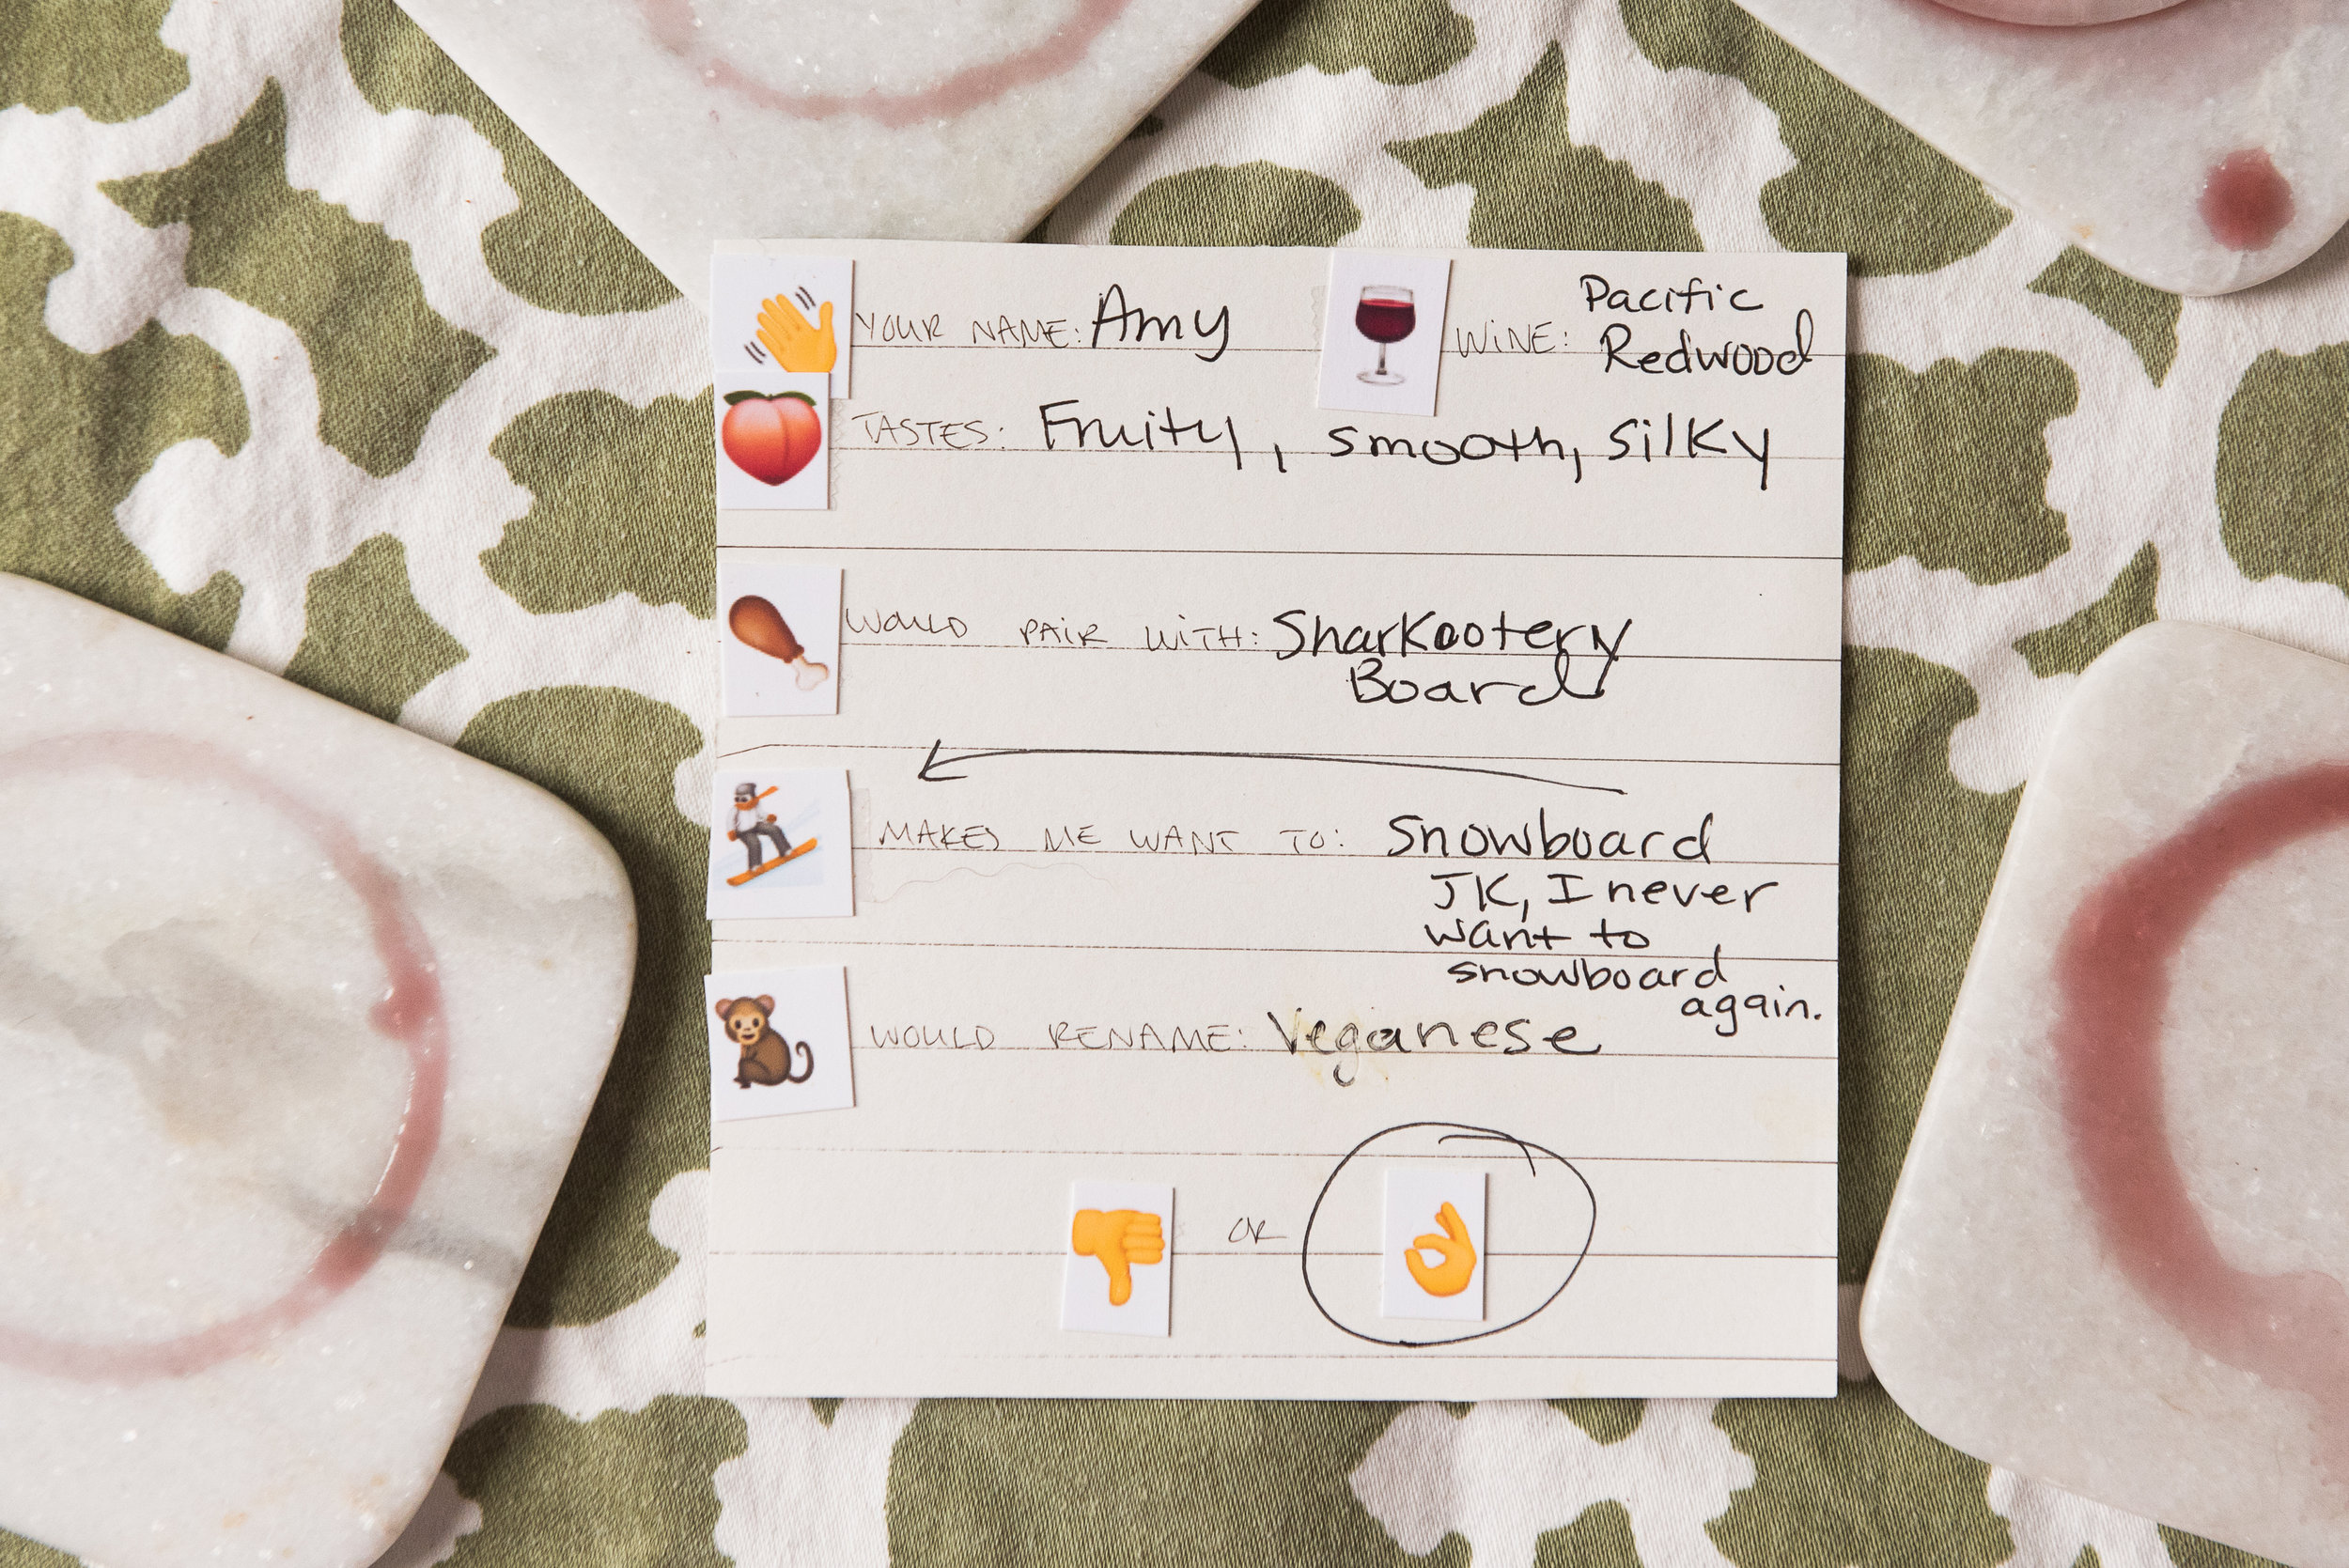 YOUR NAME: Amy
WINE: Pacific
Redwood
TASTES: Fruity, smooth, silky
WOULD PAIR WITH: Sharkootery
Board
MAKES ME WANT TO: Snowboard
JK, I never
want to
snowboard
again.
WOULD RENAME: Veganese
OR